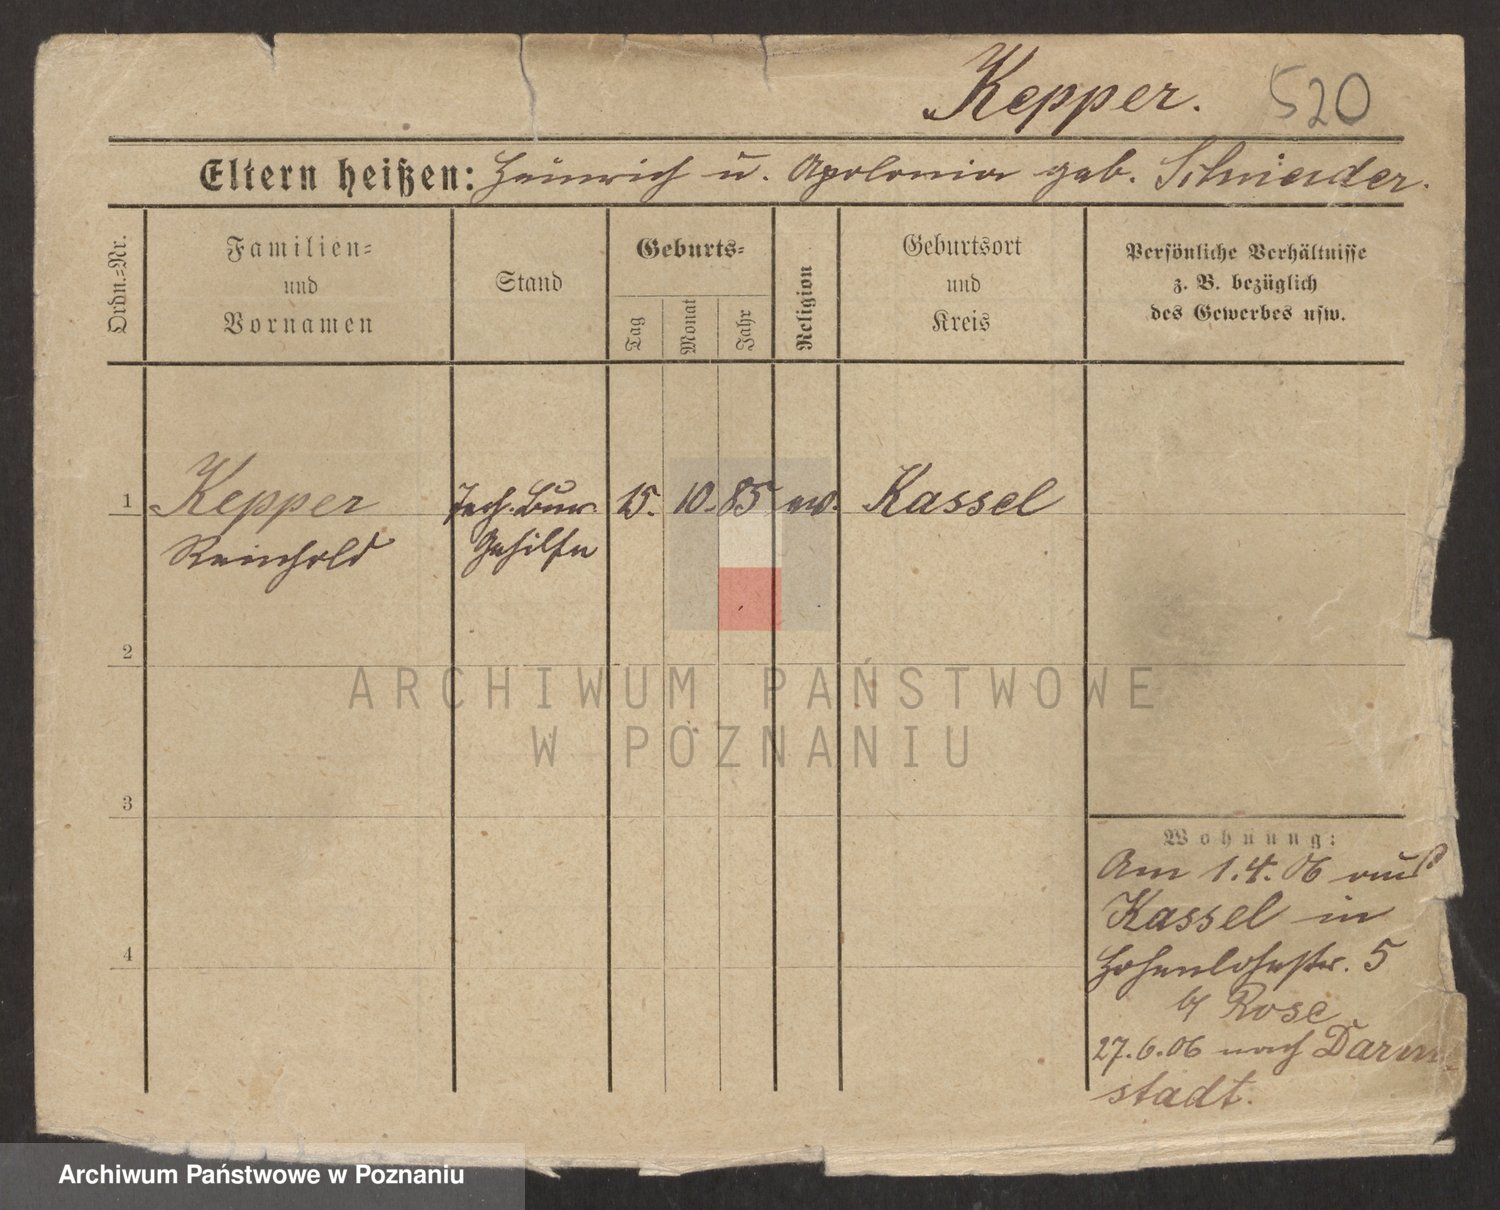 Kepper. 520
Eltern heißen: Heinrich u. Apolonia geb. Schneider.
Ordn.=Nr.
Familien=
und
Vornamen
Stand
Geburts=
Tag
Monat
Jahr
Religion
Geburtsort
und
Kreis
Persönliche Verhältnisse
z. B. bezüglich
des Gewerbes usw.
1 Kepper Tech. Bur. 15. 10. 85 ev. Kassel
Reinhold Gehilfe
2
ARCHIWUM PAŃSTWOWE
W POZNANIU
3
Wohnung:
Am 1.4.06 aus
Kassel in
Hohenlohestr. 5
b/ Rose
4
27.6.06 nach Darm
stadt.
Archiwum Państwowe w Poznaniu